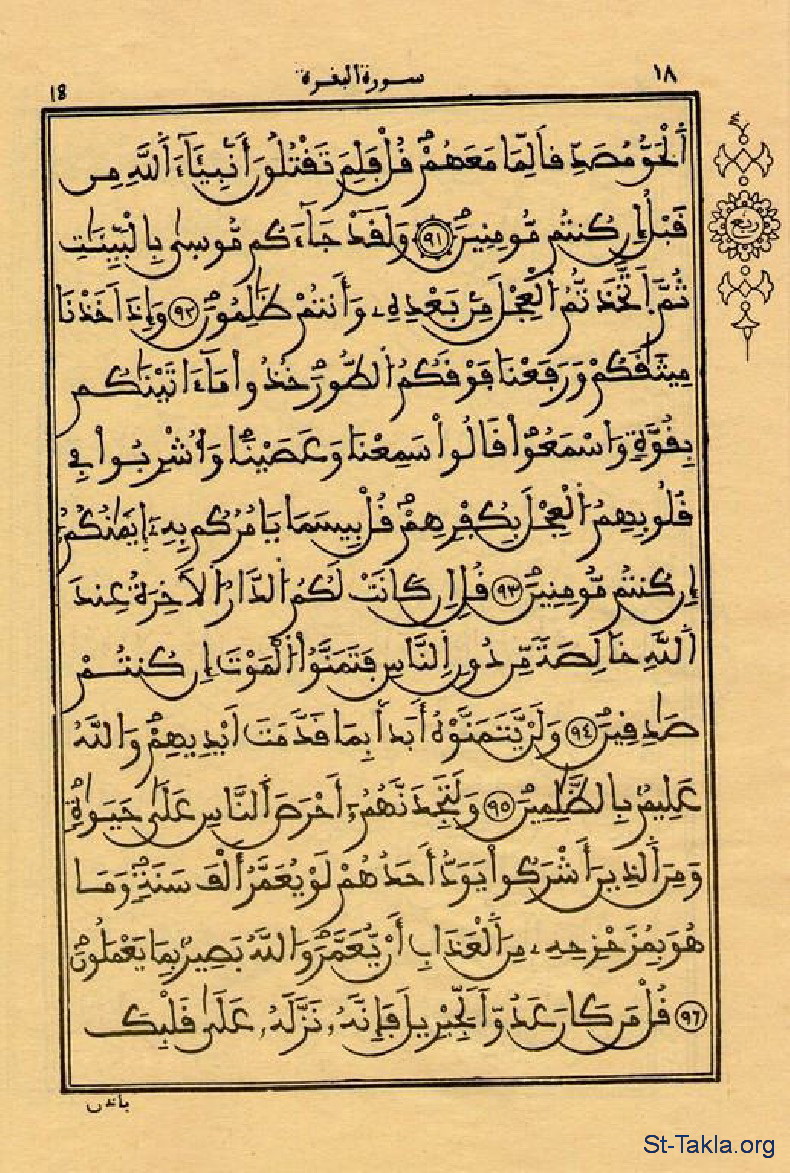 ١٨ سورة البقرة 18
اَ۬لْحَقُّ مُصَدِّقاٗ لِّمَا مَعَهُمْۖ قُلْ فَلِمَ تَقْتُلُونَ أَنۢبِيَآءَ اَ۬للَّهِ مِن
ربع
قَبْلُ إِن كُنتُم مُّومِنِينَۖ ٩١ وَلَقَدْ جَآءَكُم مُّوسٜىٰ بِالْبَيِّنَٰتِ
ثُمَّ اَ۪تَّخَذتُّمُ اُ۬لْعِجْلَ مِنۢ بَعْدِهِۦ وَأَنتُمْ ظَٰلِمُونَۖ ٩٢ وَإِذَ اَخَذْنَا
مِيثَٰقَكُمْ وَرَفَعْنَا فَوْقَكُمُ اُ۬لطُّورَۖ خُذُواْ مَآ ءَاتَيْنَٰكُم
بِقُوَّةٖ وَاسْمَعُواْۖ قَالُواْ سَمِعْنَا وَعَصَيْنَاۖ وَأُشْرِبُواْ فِے
قُلُوبِهِمُ اُ۬لْعِجْلَ بِكُفْرِهِمْۖ قُلْ بِيسَمَا يَامُرُكُم بِهِۦٓ إِيمَٰنُكُمُۥٓ
إِن كُنتُم مُّومِنِينَۖ ٩٣ قُلِ اِن كَانَتْ لَكُمُ اُ۬لدَّارُ اُ۬لَاخِرَةُ عِندَ
اَ۬للَّهِ خَالِصَةٗ مِّن دُونِ اِ۬لنَّاسِ فَتَمَنَّوُاْ اُ۬لْمَوْتَ إِن كُنتُمْ
صَٰدِقِينَۖ ٩٤ وَلَنْ يَّتَمَنَّوْهُ أَبَداَۢ بِمَا قَدَّمَتَ اَيْدِيهِمْۖ وَاللَّهُ
عَلِيمُۢ بِالظَّٰلِمِينَۖ ٩٥ وَلَتَجِدَنَّهُمُۥٓ أَحْرَصَ اَ۬لنَّاسِ عَلَىٰ حَيَوٰةٖ
وَمِنَ اَ۬لذِينَ أَشْرَكُواْ يَوَدُّ أَحَدُهُمْ لَوْ يُعَمَّرُ أَلْفَ سَنَةٖۖ وَمَا
هُوَ بِمُزَحْزِحِهِۦ مِنَ اَ۬لْعَذَابِ أَنْ يُّعَمَّرَۖ وَاللَّهُ بَصِيرُۢ بِمَا يَعْمَلُونَۖ
٩٦ قُلْ مَن كَانَ عَدُوّاٗ لِّجِبْرِيلَ فَإِنَّهُۥ نَزَّلَهُۥ عَلَىٰ قَلْبِكَ
بإذن
St-Takla.org